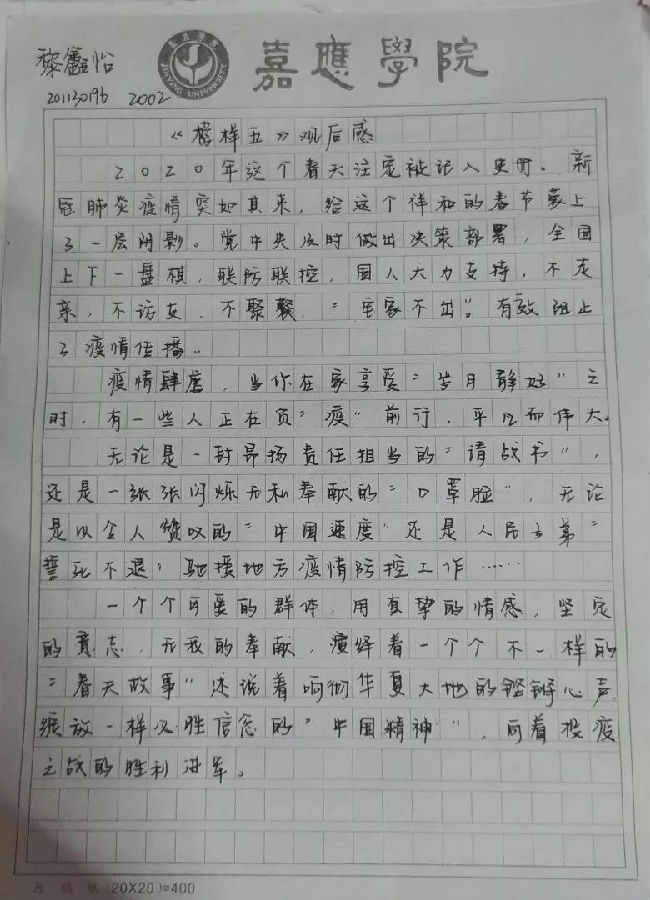 黎鑫怡
嘉應學院
JIAYING UNIVERSITY
201130196 2002
《榜样五》观后感
2020年这个春天注定被记入史册、新
冠肺炎疫情突如其来，给这个祥和的春节蒙上
了一层阴影。党中央及时做出决策部署，全国
上下一盘棋，联防联控，国人大力支持，不走
亲，不访友、不聚餐，"宅家不出"。有效阻止
了疫情传播。
疫情肆虐，当你在家享受"岁月静好"之
时，有一些人正在负"疫"前行，平凡而伟大。
无论是一封昂扬责任担当的"请战书"，
还是一张张闪烁无私奉献的"口罩脸"，无论
是以令人赞叹的"中国速度"还是人民子弟"
誓死不退"驰援地方疫情防控工作……
一个个可爱的群体，用真挚的情感，坚定
的意志，无我的奉献，演绎着一个个不一样的
"春天故事"述说着响彻华夏大地的铿锵心声
绽放一样必胜信念的"中国精神"，向着投疫
之战的胜利进军。
(20X20)=400